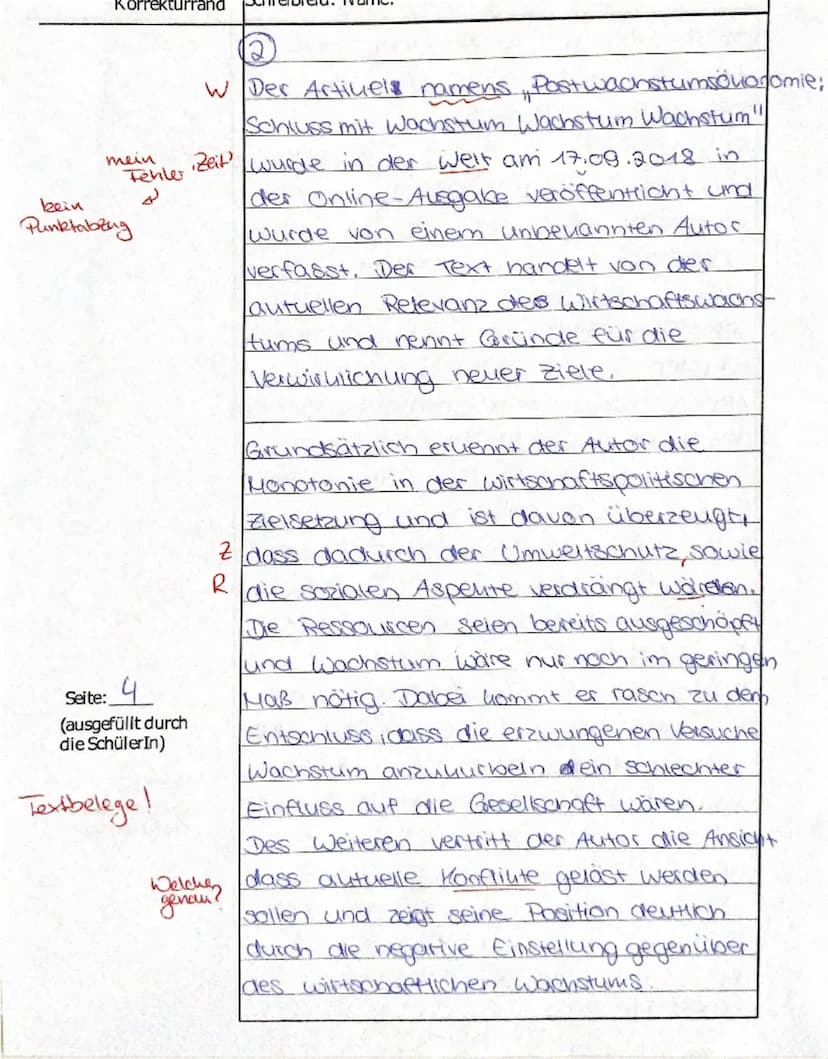 Korrekturrand
②
W Der Artikel namens „Postwachstumsökonomie:
Schluss mit Wachstum Wachstum Wachstum"
mein Fehler 'Zeit' wurde in der Welt am 17.09.2018 in
kein Punktabzug
der Online-Ausgabe veröffentlicht und
wurde von einem unbekannten Autor
verfasst. Der Text handelt von der
aktuellen Relevanz des Wirtschaftswachs-
tums und nennt Gründe für die
Verwirklichung neuer Ziele.
Grundsätzlich erkennt der Autor die
Monotonie in der wirtschaftspolitischen
Zielsetzung und ist davon überzeugt,
Z dass dadurch der Umweltschutz, sowie
R die sozialen Aspekte verdrängt wärden.
Die Ressourcen seien bereits ausgeschöpft
und Wachstum wäre nur noch im geringen
Seite: 4
Maß nötig. Dabei kommt er rasch zu dem
(ausgefüllt durch
die SchülerIn)
Entschluss, dass die erzwungenen Versuche
Wachstum anzukurbeln ein schlechter
Textbelege!
Einfluss auf die Gesellschaft wären.
Des Weiteren vertritt der Autor die Ansicht
Welche genau?
dass aktuelle Konflikte gelöst werden
sollen und zeigt seine Position deutlich
durch die negative Einstellung gegenüber
des wirtschaftlichen Wachstums.